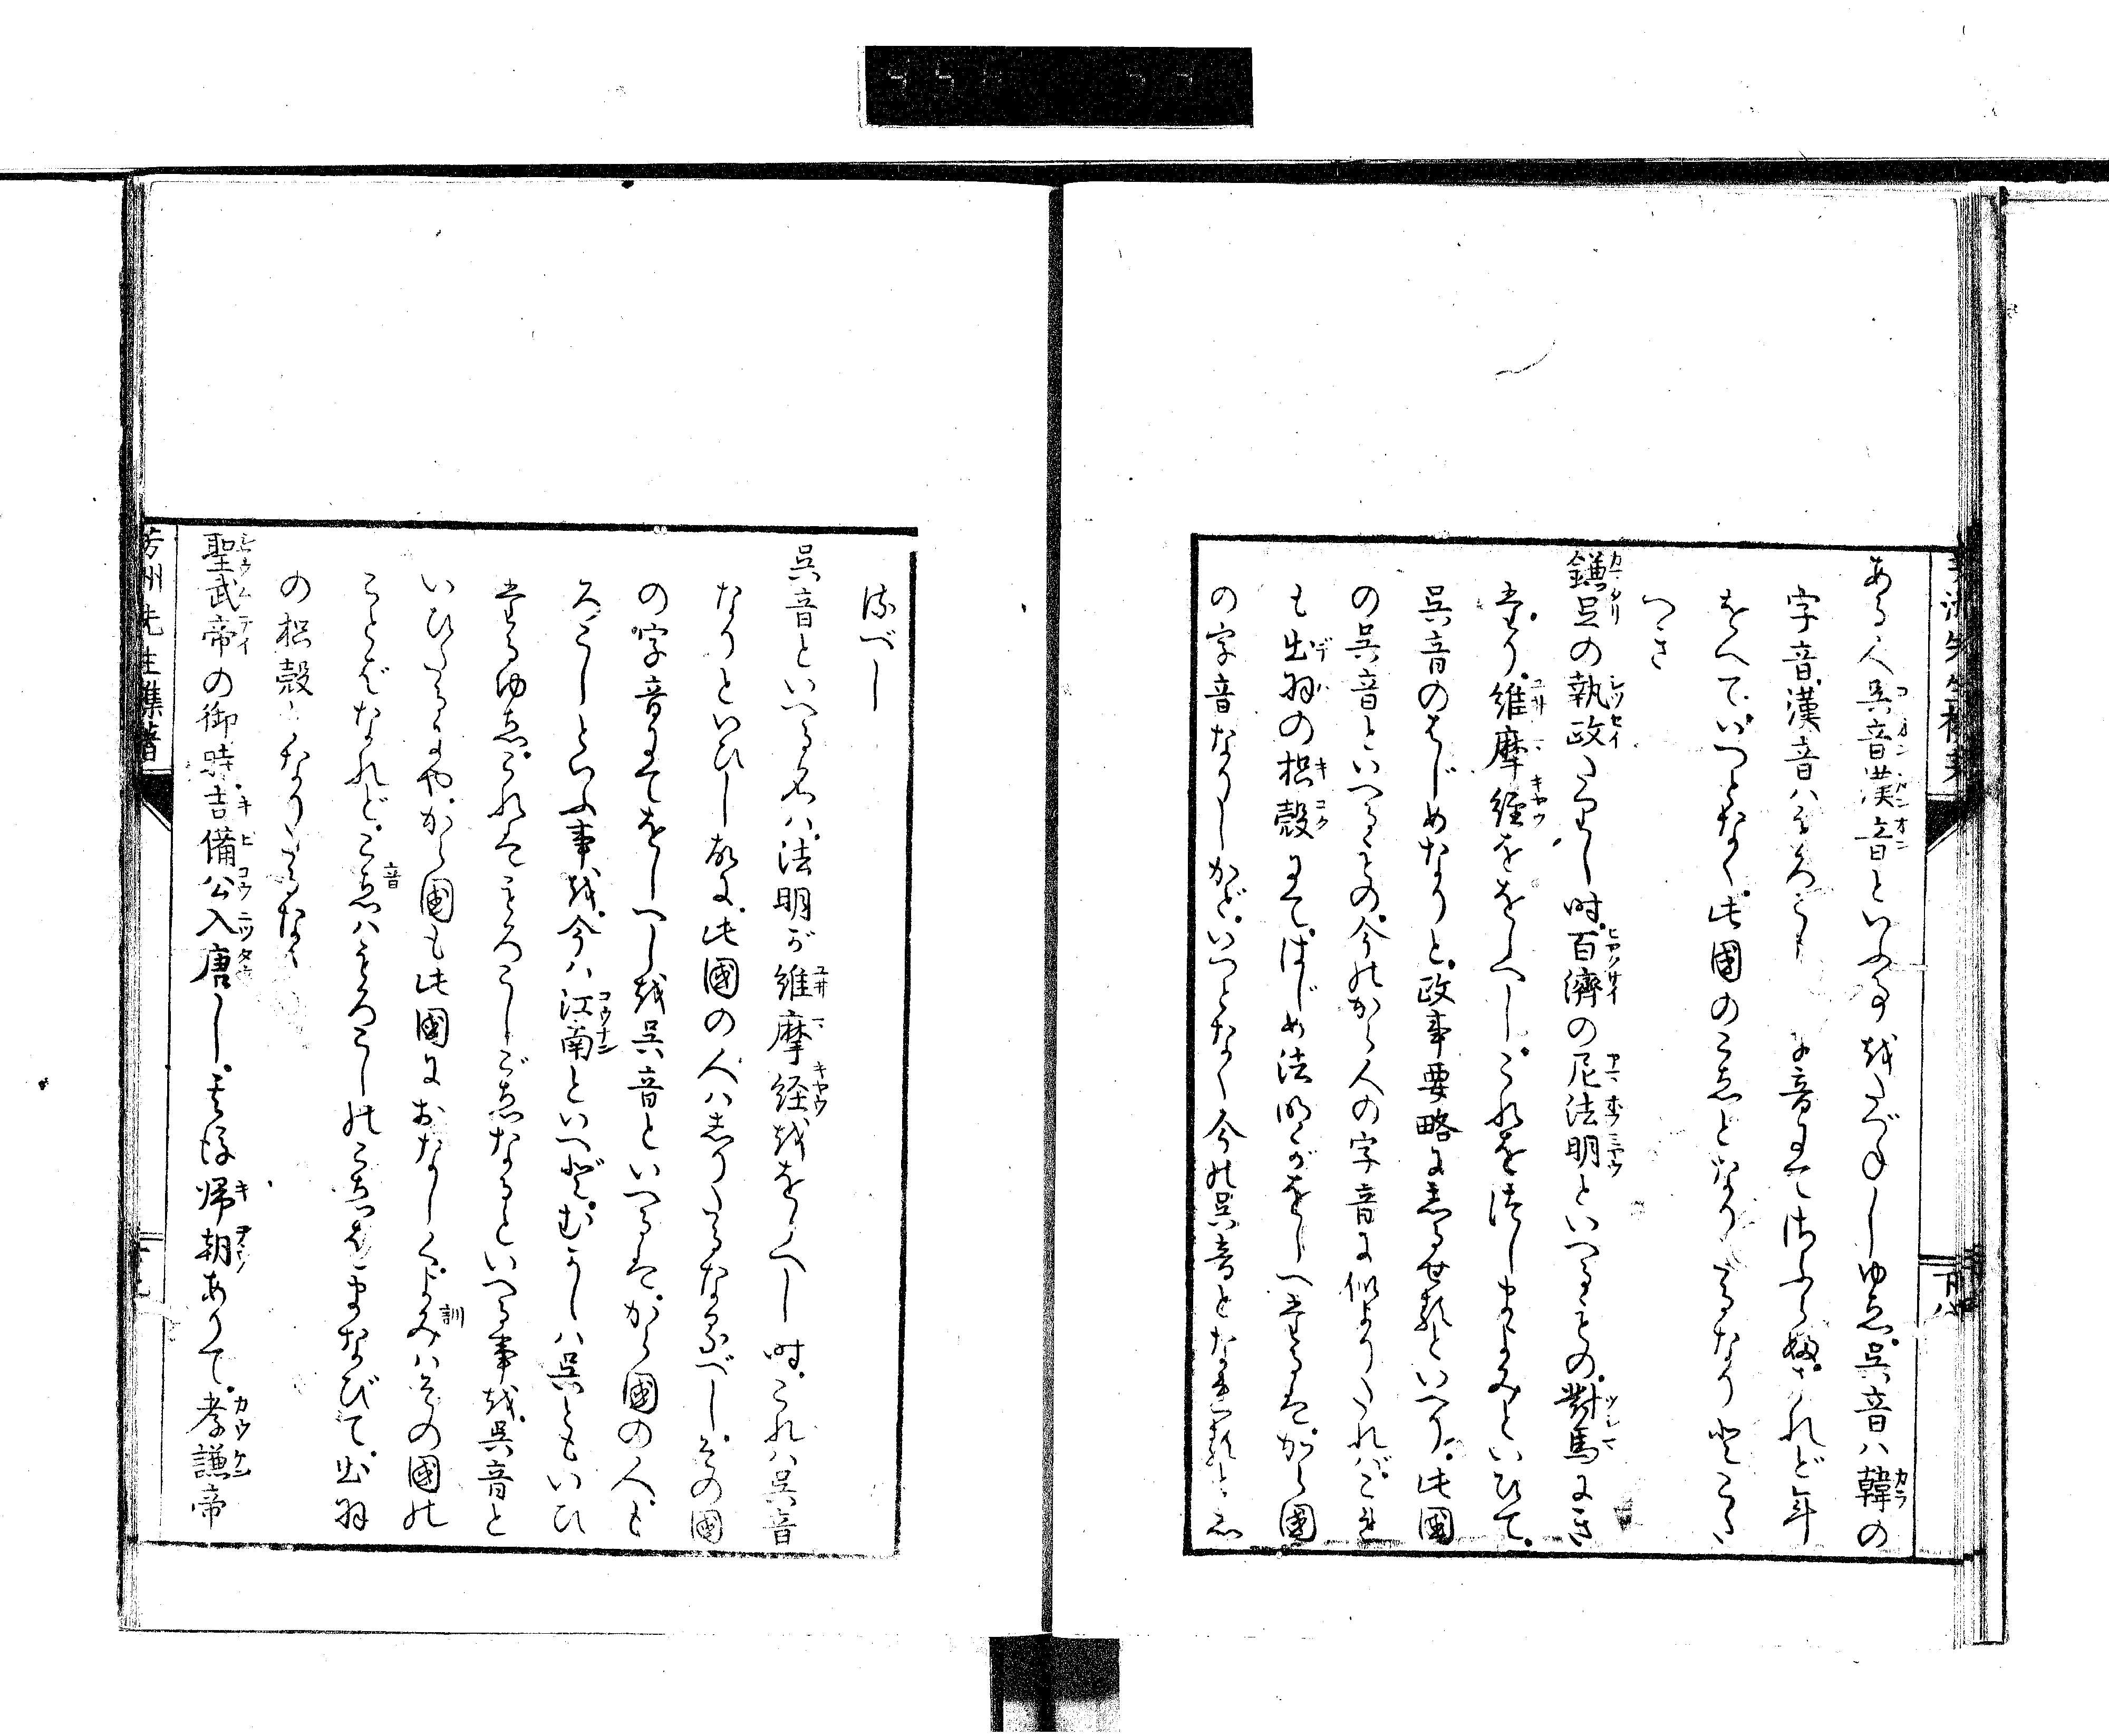 ある人呉音漢音といふ事をたづねしゆゑ呉音ハ韓の
字音漢音ハもろこし の音にて侍ふらめされど年
をへていつとなく此國のこゑとなりたるなり
つき
鎌足の執政たりし時百濟の尼法明といへるもの對馬にき
たり維摩經ををしへしこれを つしまよみといひて
呉音のはじめなりと政事要略に志るせるといへり此國
の呉音といへるもの今のから人の字音に似よりたれバこれ
も出羽の枳殻にてはじめ法明がをしへたるはから國
の字音なりしかどいつとなく今の呉音となれると
るべし
呉音といへる名ハ法明が維摩経ををしへし時これハ呉音
なりといひし故に此國の人ハ志りたるなるべしその國
の字音にてをしへしを呉音といへるはから國の人も
ろこしといふ事を今ハ江南といへどむかしハ呉ともいひ
たるゆゑこれはもろこしごゑなるといへる事を呉音と
いひたるにやから國も此國におなじくよみハその國の
ことばなれどこゑハもろこしのこゑをまなびて出羽
の枳殻となりたるなり
聖武帝の御時吉備公入唐し其後帰朝ありて孝謙帝
芳洲先生雋著